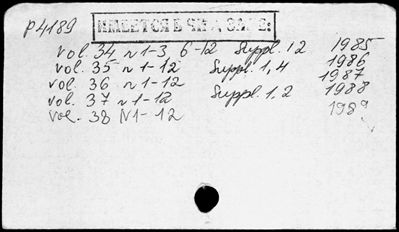 P4189
ИМЕЕТСЯ В ЧИТ. ЗАЛЕ:
vol. 34 N1-3, 6-12 Suppl. 12 1985
vol. 35 N1-12 Suppl. 1,4 1986
vol. 36 N1-12 1987
vol. 37 N1-12 Suppl. 1,2 1988
vol. 38 N1-12 1989